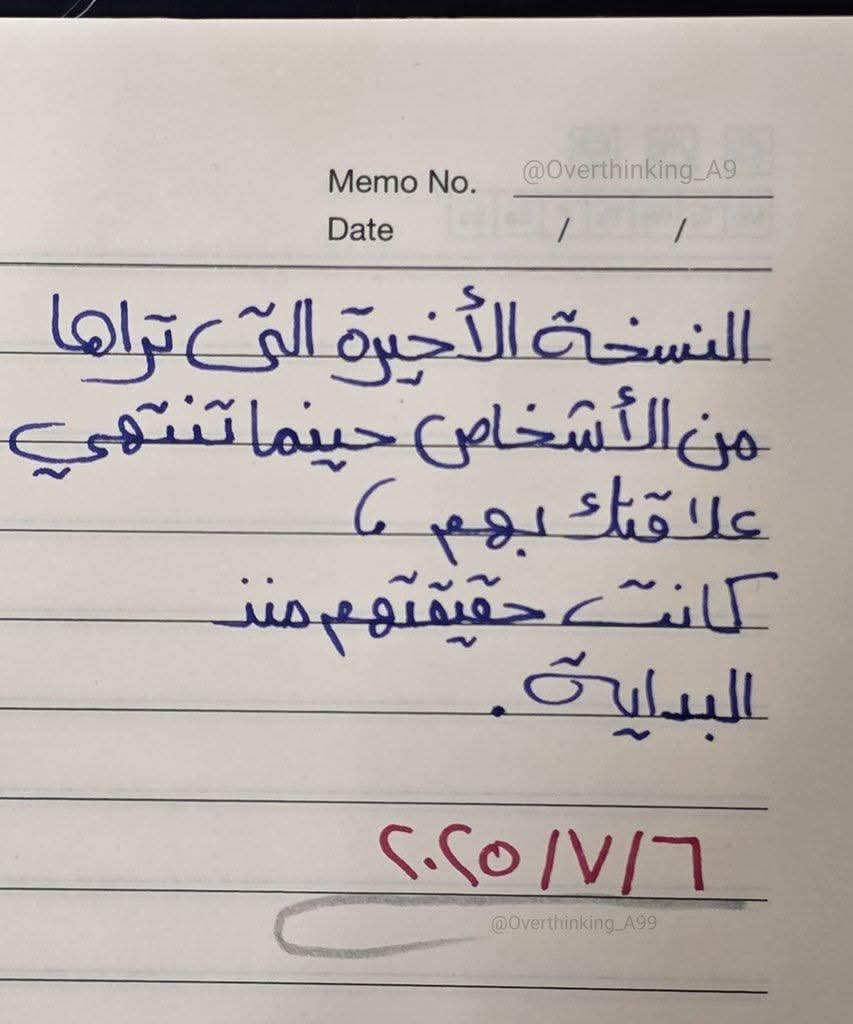 Memo No. @Overthinking_A9
Date / /
النسخة الأخيرة التي تراها
من الأشخاص حينما تنتهي
علاقتك بهم ،
كانت حقيقتهم منذ
البداية .
٢٠٢٥/٧/٦
@Overthinking_A99